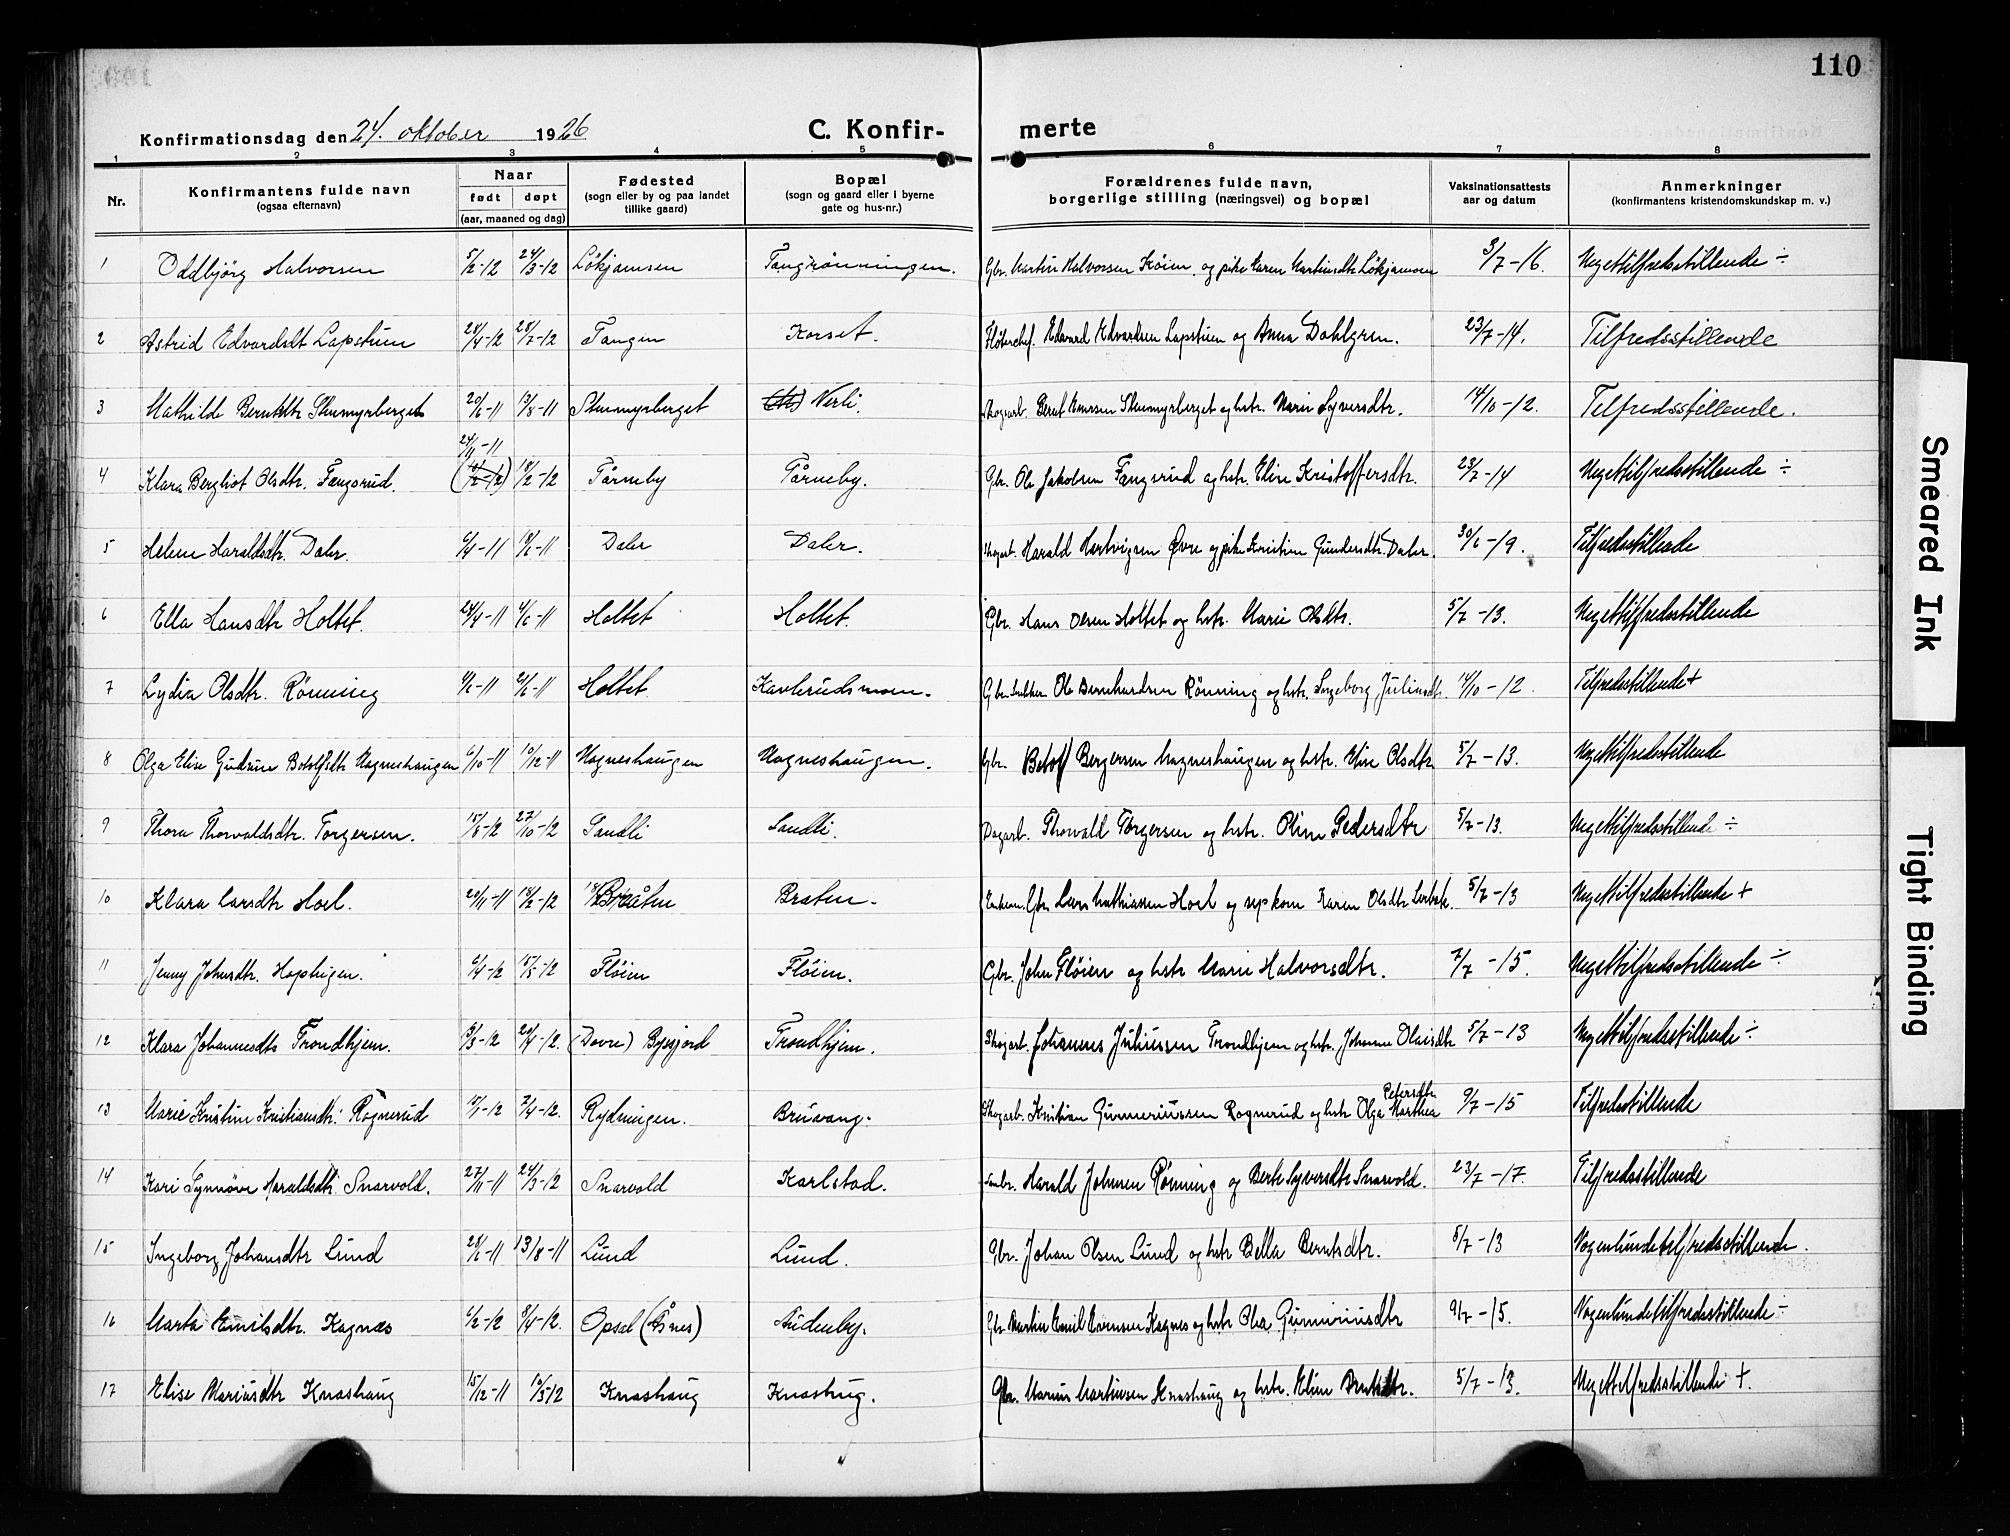 110
Konfirmationsdag den 24. oktober 1926 C. Konfir- merte
1 2 3 4 5 6 7 8
Nr. Konfirmantens fulde navn (ogsaa efternavn) Naar født døpt (aar, maaned og dag) Fødested (sogn eller by og paa landet tillike gaard) Bopæl (sogn og gaard eller i byerne gate og hus-nr.) Forældrenes fulde navn, borgerlige stilling (næringsvei) og bopæl Vaksinationsattests aar og datum Anmerkninger (konfirmantens kristendomskundskap m. v.)
1 Oddbjörg Halvorsen 5/2-12 24/3-12 Lökjamsen Tangrønningen. Gbr. Martin Halvorsen Köien og pike Karen Martinsdtr Lökjamsen 3/7-16. Megettilfredsstillende ÷
2 Astrid Edvardsdt Lapstuen 28/4-12 28/7-12 Tangen Korset. Flöterchef. Edvard Edvardsen Lapstuen og Anna Dahlgren. 23/7-14. Tilfredsstillende
3 Mathilde Berntsdtr Stenmyrberget 20/6-11 13/8-11 Stenmyrberget Verli. Skogarb. Bernt Stenmyrberget og hstr. Marie Syversdtr. 14/10-12. Tilfredsstillende.
4 Klara Bergliot Olsdtr. Fængsrud. 24/11-11 18/2-12 Tårneby Tårneby. Gbr. Ole Jakobsen Fængsrud og hstr. Eline Kristoffersdtr. 23/7-14 Megettilfredsstillende ÷
5 Helene Haraldsdtr. Daler. 6/4-11 18/6-11 Daler Daler. Skogarb. Harald Hertvigsen Øvre og pike Kristine Gundersdtr. Daler. 30/6-19. Tilfredsstillende
6 Ella Hansdtr Holtet. 24/4-11 4/6-11 Holtet Holtet. Gbr. Hans Olsen Holtet og hstr. Marie Olsdtr. 5/7-13. Megettilfredsstillende
7 Lydia Olsdtr. Rönning 4/6-11 Holtet Kavlerudsmoen. Gbr. Ole Bernhardsen Rønning og hstr. Ingeborg Juliusdt. 14/10-12. Tilfredsstillende +
8 Olga Elise Gudrun Botolfsdtr Magneshaugen 6/10-11 10/12-11 Magneshaugen Magneshaugen. Gbr. Botolf Bergersen Magneshaugen og hstr. Elise Olsdtr 5/7-13. Megettilfredsstillende
9 Thora Thorvaldsdtr. Torgersen. 15/8-12 27/10-12 Sandli Sandli. Dagarb. Thorvald Torgersen og hstr. Oline Pedersdtr 5/7-13. Megettilfredsstillende ÷
10 Klara Larsdtr Hoel. 20/11-11 18/2-12 Bråten Braten. Gbr. Lars Mathiassen Hoel og Karen Olsdtr 5/7-13 Megettilfredsstillende +
11 Jenny Johnsdtr. Hophugen. 6/4-12 15/5-12 Flöien Flöien. Gbr. John Flöien og hstr Marie Halvorsdtr. 7/7-15. Megettilfredsstillende ÷
12 Klara Johannesdtr Trondhjem. 3/3-12 20/4-12. (Dovre) Bysjord Trondhjem. Skogarb. Johannes Juliussen Trondhjem og hstr. Johanne Olaisdtr 5/7-13 Megettilfredsstillende ÷
13 Marie Kristine Kristiansdtr. Rognerud 10/1-12 7/4-12. Rydningen. Bruvang. Skogarb. Kristian Gunneriussen Rognerud og hstr Olga Marthea Petersdtr. 9/7-15 Tilfredsstillende
14 Kari Synnöve Haraldsdtr. Snarvold. 27/11-11 24/3-12 Snarvold Karlstad. Harald Johnsen Rönning og Berte Syversdtr Snarvold. 23/7-17. Tilfredsstillende
15 Ingeborg Johansdtr Lund 28/6-11 13/8-11 Lund Lund. Gbr. Johan Olsen Lund og hstr Bella Berntsdtr. 5/7-13 Nogenlundetilfredsstillende.
16 Marta Emilsdtr. Kagnæs 6/2-12 8/4-12. Opset (Åsnes) Audenby. Gbr Martin Emil Evensen Kagnes og hstr Olea Gunneriusdtr 9/7-15. Nogenlundetilfredsstillende ÷
17 Elise Mariusdtr Knashaug 15/12-11 10/3 12 Knashaug Knashug. Gbr. Marius Martinsen Knashaug og hstr. Eline Berntsdtr. 5/7-13. Megettilfredsstillende +.
Smeared Ink
Tight Binding